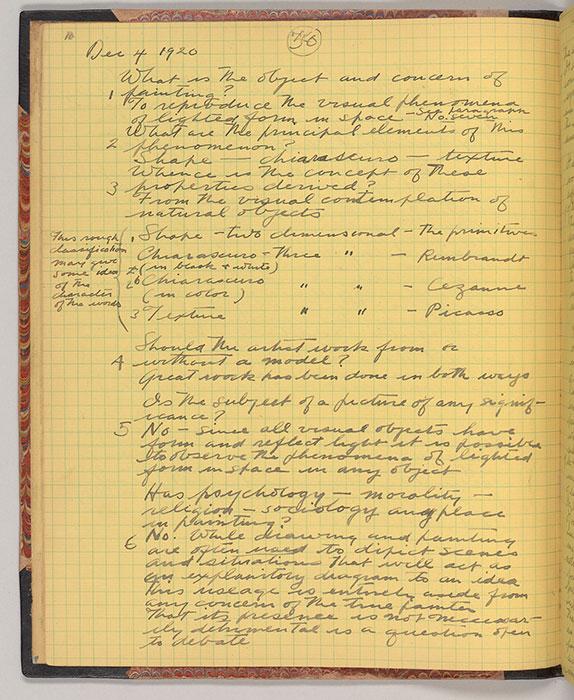 Dec 4 1920
56
What is the object and concern of
1 painting?
To reproduce the visual phenomena
of lighted form in space - See paragraph
No. Seven
What are the principal elements of this
2 phenomenon?
Shape — chiarascuro — texture
Whence is the concept of these
3 properties derived?
From the visual contemplation of
natural objects
This rough
classification
may give
some idea
of the
character
of the words
1 Shape - two dimensional - the primitives
Chiarascuro - three " - Rembrandt
2 a (in black + white)
2 b Chiarascuro " " - Cezanne
(in color)
3 Texture " " - Picasso
Should the artist work from or
4 without a model?
Great work has been done in both ways
Is the subject of a picture of any signif-
icance?
5 No - since all visual objects have
form and reflect light it is possible
to observe the phenomena of lighted
form in space in any object
Has psychology - morality -
religion - sociology any place
in painting?
6 No. While drawing and painting
are often used to dipict scenes
and situations that will act as
an explanitory diagram to an idea
this useage is entirely aside from
any concern of the true painter
That its presence is not necessar-
ily detrimental is a question open
to debate